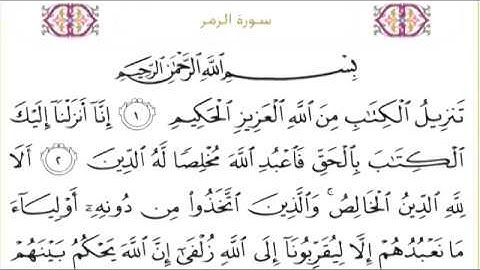 سورة الزمر
بِسْمِ اللَّهِ الرَّحْمَٰنِ الرَّحِيمِ
تَنزِيلُ الْكِتَابِ مِنَ اللَّهِ الْعَزِيزِ الْحَكِيمِ ١ إِنَّا أَنزَلْنَا إِلَيْكَ
الْكِتَابَ بِالْحَقِّ فَاعْبُدِ اللَّهَ مُخْلِصًا لَهُ الدِّينَ ٢ أَلَا
لِلَّهِ الدِّينُ الْخَالِصُ ۚ وَالَّذِينَ اتَّخَذُوا مِن دُونِهِ أَوْلِيَاءَ
مَا نَعْبُدُهُمْ إِلَّا لِيُقَرِّبُونَا إِلَى اللَّهِ زُلْفَىٰ إِنَّ اللَّهَ يَحْكُمُ بَيْنَهُمْ